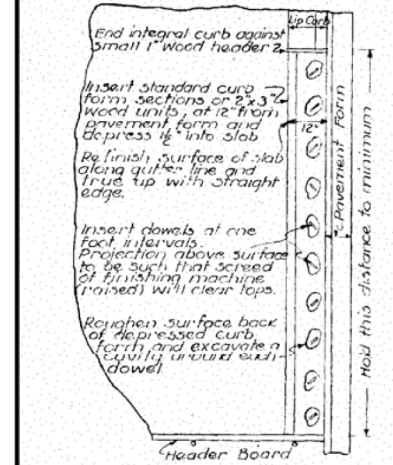 Lip Curb
End integral curb against
small 1" wood header 2
Insert standard curb
form sections or 2"x3"
wood units, at 12" from
pavement form and
depress 1½" into slab
12"
Refinish surface of slab
along gutter line and
true up with straight
edge.
Insert dowels at one
foot intervals.
Projection above surface
to be such that screed
of finishing machine
(raised) will clear tops.
Roughen surface back
of depressed curb
form and excavate a
cavity around each
dowel
Pavement Form
Hold this distance to minimum
Header Board